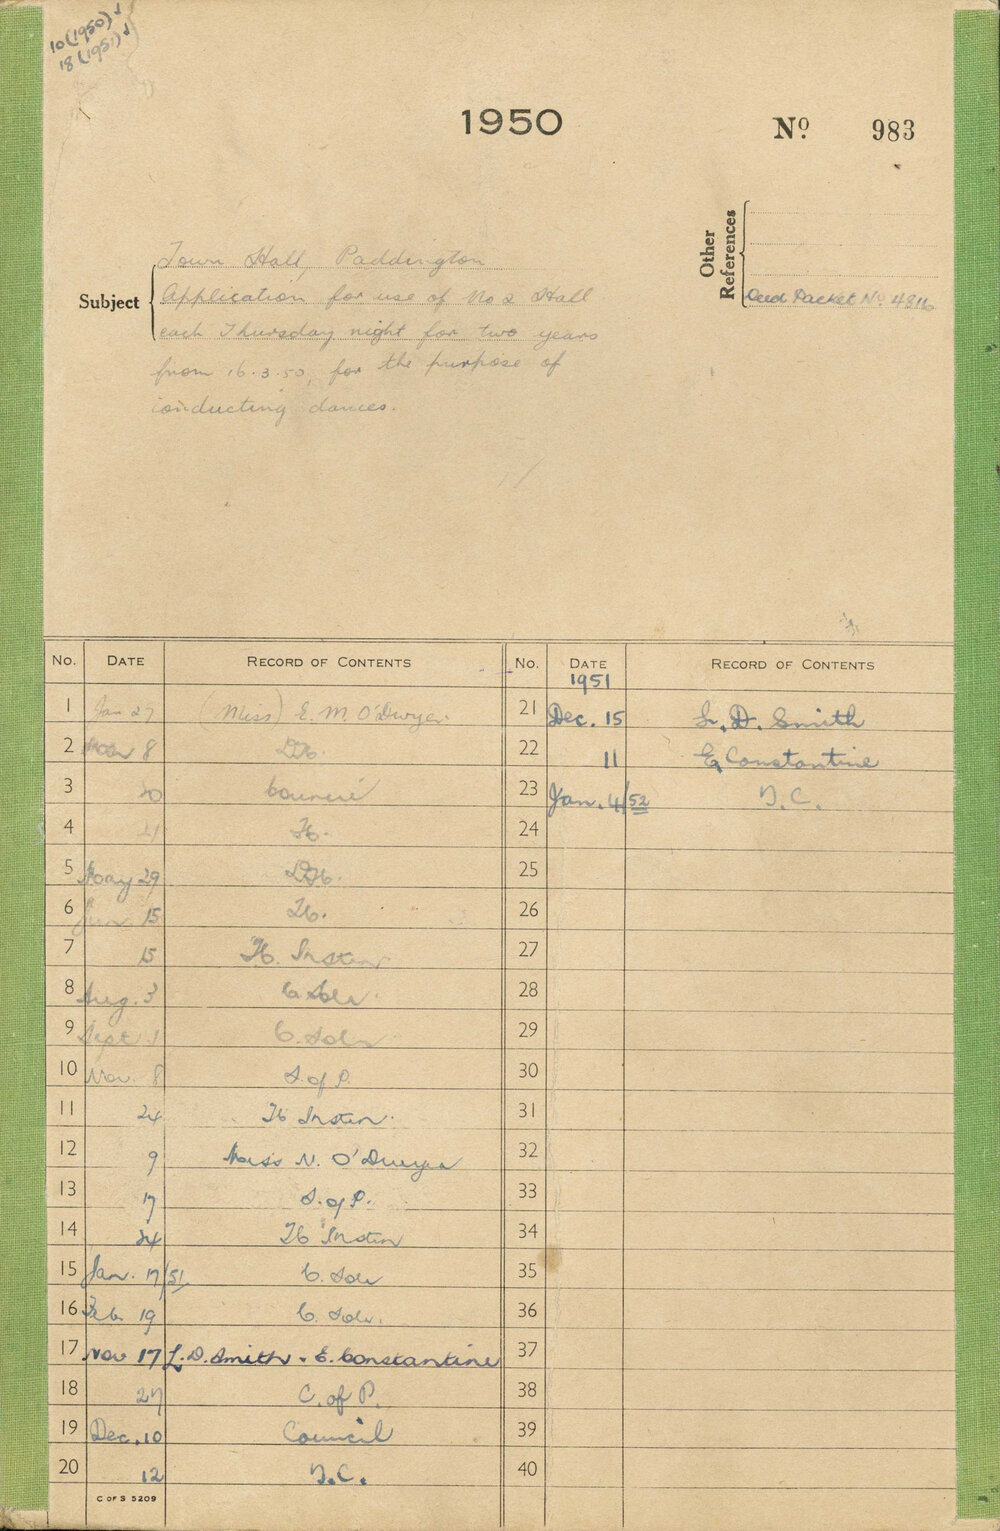 10 (1950)
18 (1951)
1950
Nº 983
Other References
Deed Packet Nº 4816
Subject
Town Hall, Paddington
Application for use of No 2 Hall
each Thursday night for two years
from 16.3.50, for the purpose of
conducting dances.
No. DATE RECORD OF CONTENTS
1 Jan 27 (Miss) E. M. O'Dwyer
2 8
3 20 Council
4
5 May 29
6 15
7 15
8 Aug. 3 C. Solr.
9 Sept 1 C. Solr
10 Nov. 8 S. of P.
11 24
12 9 Miss N. O'Dwyer
13 17 S. of P.
14 24
15 Jan. 17/51 C. Solr
16 Feb 19 C. Solr.
17 Nov 17 L. D. Smith . E. Constantine
18 27 C. of P.
19 Dec. 10 Council
20 12 T.C.
C OF S 5209
No. DATE RECORD OF CONTENTS
1951
21 Dec. 15 L. D. Smith
22 11 E Constantine
23 Jan. 4/52 T.C.
24
25
26
27
28
29
30
31
32
33
34
35
36
37
38
39
40